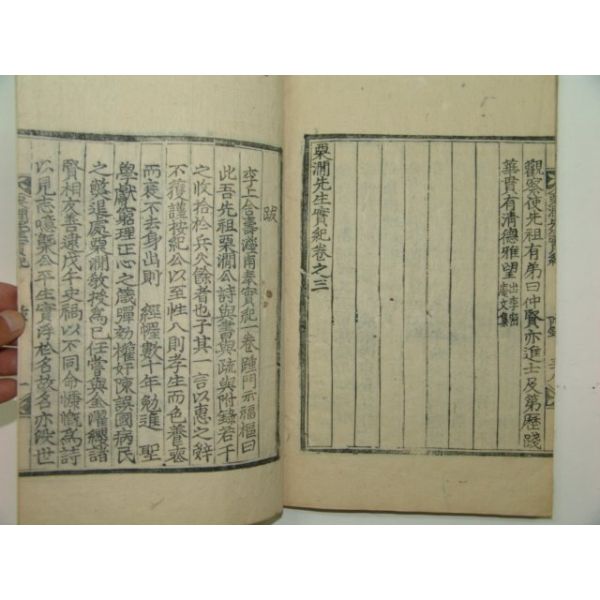 觀察使先祖有弟曰仲賢亦進士及第歷踐
華貴有淸德雅望出李密菴文集
栗澗先生實紀卷之三
跋
李上舍壽瀅甫奉實紀一卷踵門示福樞曰
此吾先祖栗澗公詩與書與疏與附錄若干
之收拾於兵火餘者也子其一言以惠之辤
不獲謹按紀公以至性人則孝生而色養喪
而哀不去身出則 經幄數十年勉進 聖
學獻窮理正心之箴彈劾權奸陳誤國病民
之戆退處栗澗敎授爲己任嘗與金濯纓諸
賢相友善逮戊午史禍以不同命慷慨爲詩
以見志噫槩公平生實浮於名故名亦從世